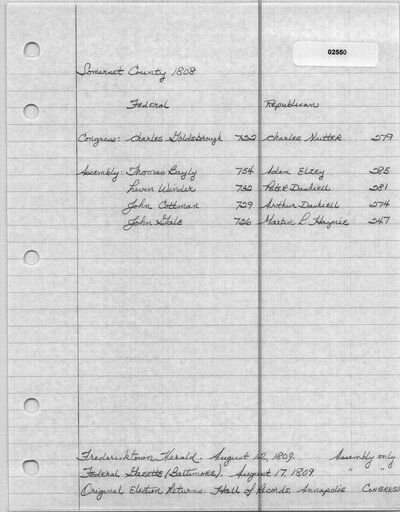 02550
Somerset County 1808
Federal Republican
Congress: Charles Goldsborough 722 Charles Nutter 279
Assembly: Thomas Bayly 754 Adam Elzey 285
Levin Winder 732 Peter Dashiell 281
John Cottman 729 Arthur Dashiell 274
John Gale 726 Martin L. Haynie 247
Fredericktown Herald. August 12, 1809. Assembly only
Federal Gazette (Baltimore). August 17, 1809 " "
Original Election Returns. Hall of Records, Annapolis CONGRESS